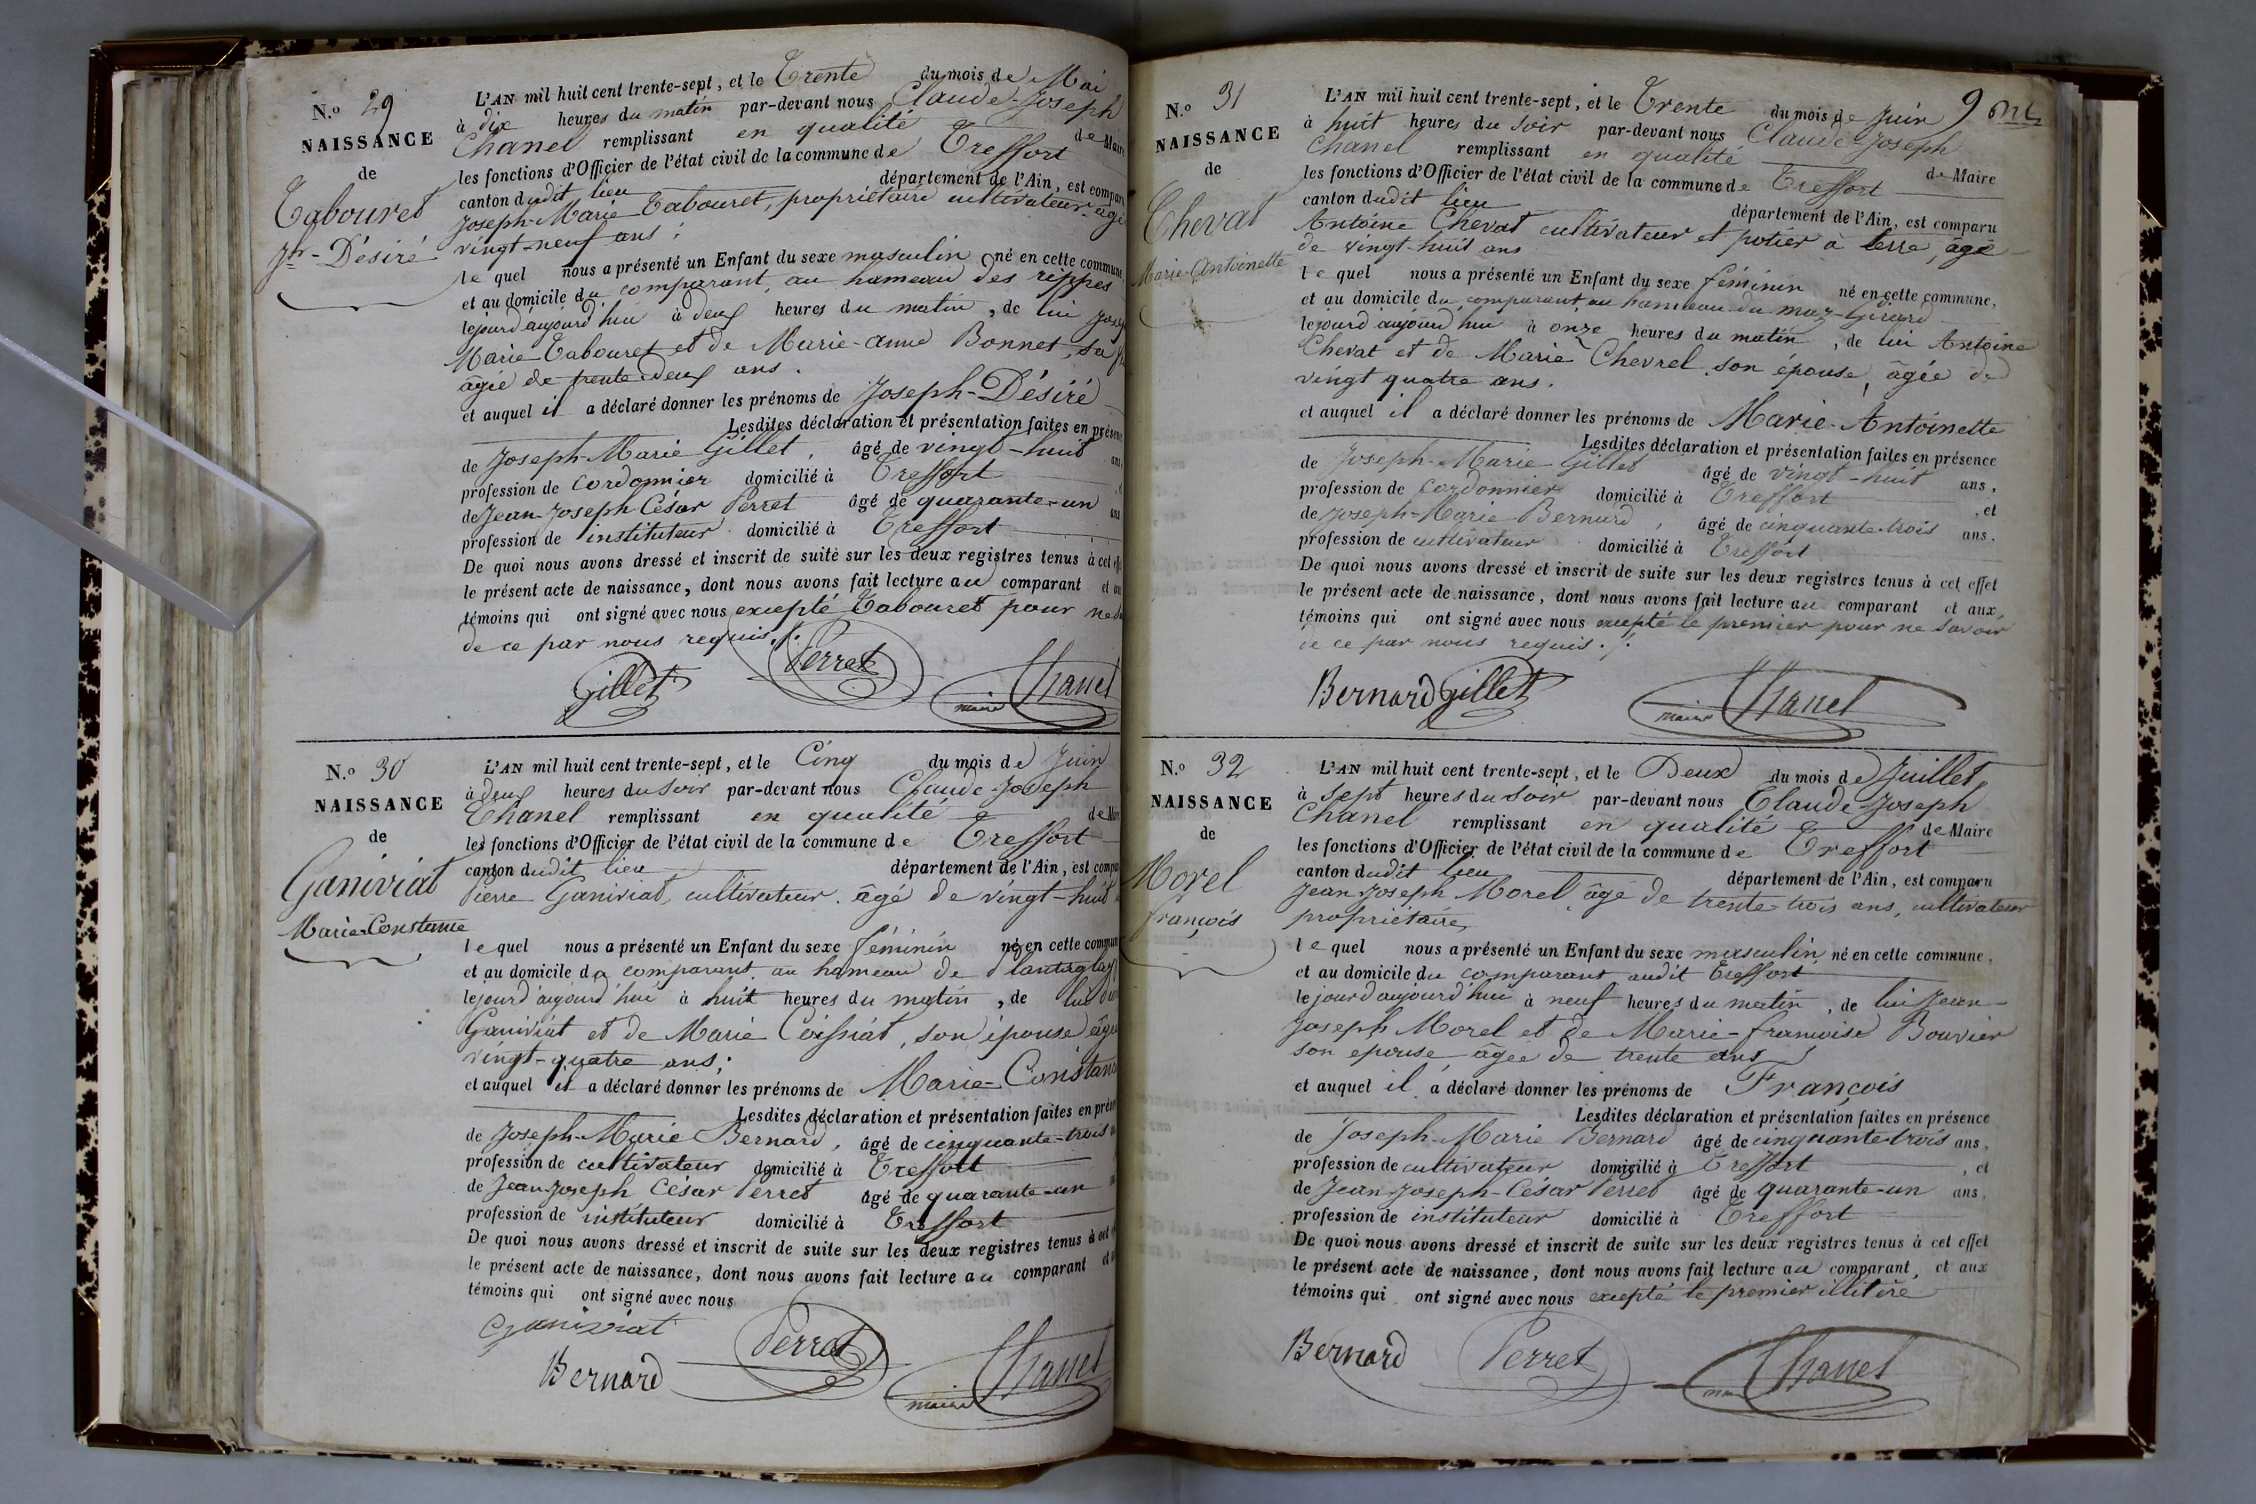 N.º 29
NAISSANCE
de
Tabouret
Jh - Désiré
L'AN mil huit cent trente-sept, et le Trente du mois de Mai
à dix heures du matin par-devant nous Claude-Joseph
Chanel remplissant en qualité de Maire
les fonctions d'Officier de l'état civil de la commune de Treffort
canton dudit lieu département de l'Ain, est compar
Joseph-Marie Tabouret, propriétaire cultivateur âgé
vingt-neuf ans ;
lequel nous a présenté un Enfant du sexe masculin né en cette commune
et au domicile du comparant, au hameau des rippes
le jour d'aujourd'hui à deux heures du matin, de lui Jose
Marie Tabouret et de Marie-anne Bonnet, sa
âgée de trente-deux ans.
et auquel il a déclaré donner les prénoms de Joseph-Désiré
Lesdites déclaration et présentation faites en présen
de Joseph-Marie Gillet, âgé de vingt-huit ans,
profession de cordonnier domicilié à Treffort
de Jean-Joseph César Perret âgé de quarante-un ans
profession de instituteur domicilié à Treffort
De quoi nous avons dressé et inscrit de suite sur les deux registres tenus à cet eff
le présent acte de naissance, dont nous avons fait lecture au comparant et au
témoins qui ont signé avec nous excepté Tabouret pour ne
de ce par nous requis./.
Gillet Perret maire Chanel
N.º 30
NAISSANCE
de
Ganiviat
Marie-Constance
L'AN mil huit cent trente-sept, et le Cinq du mois de Juin
à deux heures du soir par-devant nous Claude-Joseph
Chanel remplissant en qualité de Mair
les fonctions d'Officier de l'état civil de la commune de Treffort
canton dudit lieu département de l'Ain, est compa
Pierre Ganiviat, cultivateur âgé de vingt-huit
lequel nous a présenté un Enfant du sexe féminin né en cette commun
et au domicile du comparant au hameau de
le jour d'aujourd'hui à huit heures du matin, de lui
Ganiviat et de Marie Coissiat, son épouse âgée
vingt-quatre ans ;
et auquel il a déclaré donner les prénoms de Marie-Constanc
Lesdites déclaration et présentation faites en prése
de Joseph-Marie Bernard, âgé de cinquante-trois
profession de cultivateur domicilié à Treffort
de Jean-Joseph César Perret âgé de quarante-un
profession de instituteur domicilié à Treffort
De quoi nous avons dressé et inscrit de suite sur les deux registres tenus à cet
le présent acte de naissance, dont nous avons fait lecture au comparant et
témoins qui ont signé avec nous
Ganiviat
Bernard Perret maire Chanel
9
N.º 31
NAISSANCE
de
Chevat
Marie-Antoinette
L'AN mil huit cent trente-sept, et le Trente du mois de Juin
à huit heures du soir par-devant nous Claude-Joseph
Chanel remplissant en qualité de Maire
les fonctions d'Officier de l'état civil de la commune de Treffort
canton dudit lieu département de l'Ain, est comparu
Antoine Chevat cultivateur et potier à terre, âgé
de vingt-huit ans
lequel nous a présenté un Enfant du sexe féminin né en cette commune,
et au domicile du comparant au hameau du maz-Girard
le jour d'aujourd'hui à onze heures du matin, de lui Antoine
Chevat et de Marie Chevrel son épouse, âgée de
vingt quatre ans.
et auquel il a déclaré donner les prénoms de Marie-Antoinette
Lesdites déclaration et présentation faites en présence
de Joseph-Marie Gillet âgé de vingt-huit ans,
profession de cordonnier domicilié à Treffort, et
de Joseph-Marie Bernard, âgé de cinquante-trois ans.
profession de cultivateur domicilié à Treffort
De quoi nous avons dressé et inscrit de suite sur les deux registres tenus à cet effet
le présent acte de naissance, dont nous avons fait lecture au comparant et aux
témoins qui ont signé avec nous excepté le premier pour ne savoir
de ce par nous requis./.
Bernard Gillet maire Chanel
N.º 32
NAISSANCE
de
Morel
françois
L'AN mil huit cent trente-sept, et le Deux du mois de Juillet
à sept heures du soir par-devant nous Claude-Joseph
Chanel remplissant en qualité de Maire
les fonctions d'Officier de l'état civil de la commune de Treffort
canton dudit lieu département de l'Ain, est comparu
Jean-Joseph Morel, âgé de trente-trois ans, cultivateur
propriétaire,
lequel nous a présenté un Enfant du sexe masculin né en cette commune,
et au domicile du comparant audit Treffort
le jour d'aujourd'hui à neuf heures du matin, de lui Jean-
Joseph Morel et de Marie-françoise Bouvier
son épouse âgée de trente ans
et auquel il a déclaré donner les prénoms de François
Lesdites déclaration et présentation faites en présence
de Joseph-Marie Bernard âgé de cinquante-trois ans,
profession de cultivateur domicilié à Treffort, et
de Jean-Joseph-César Perret âgé de quarante-un ans,
profession de instituteur domicilié à Treffort
De quoi nous avons dressé et inscrit de suite sur les deux registres tenus à cet effet
le présent acte de naissance, dont nous avons fait lecture au comparant, et aux
témoins qui ont signé avec nous excepté le premier illitéré
Bernard Perret Chanel